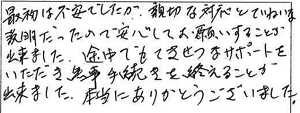 最初は不安でしたが、親切な対応とていねいな
説明だったので安心してお願いすることが
出来ました。途中でもてきせつなサポートを
いただき無事手続きを終えることが
出来ました。本当にありがとうございました。